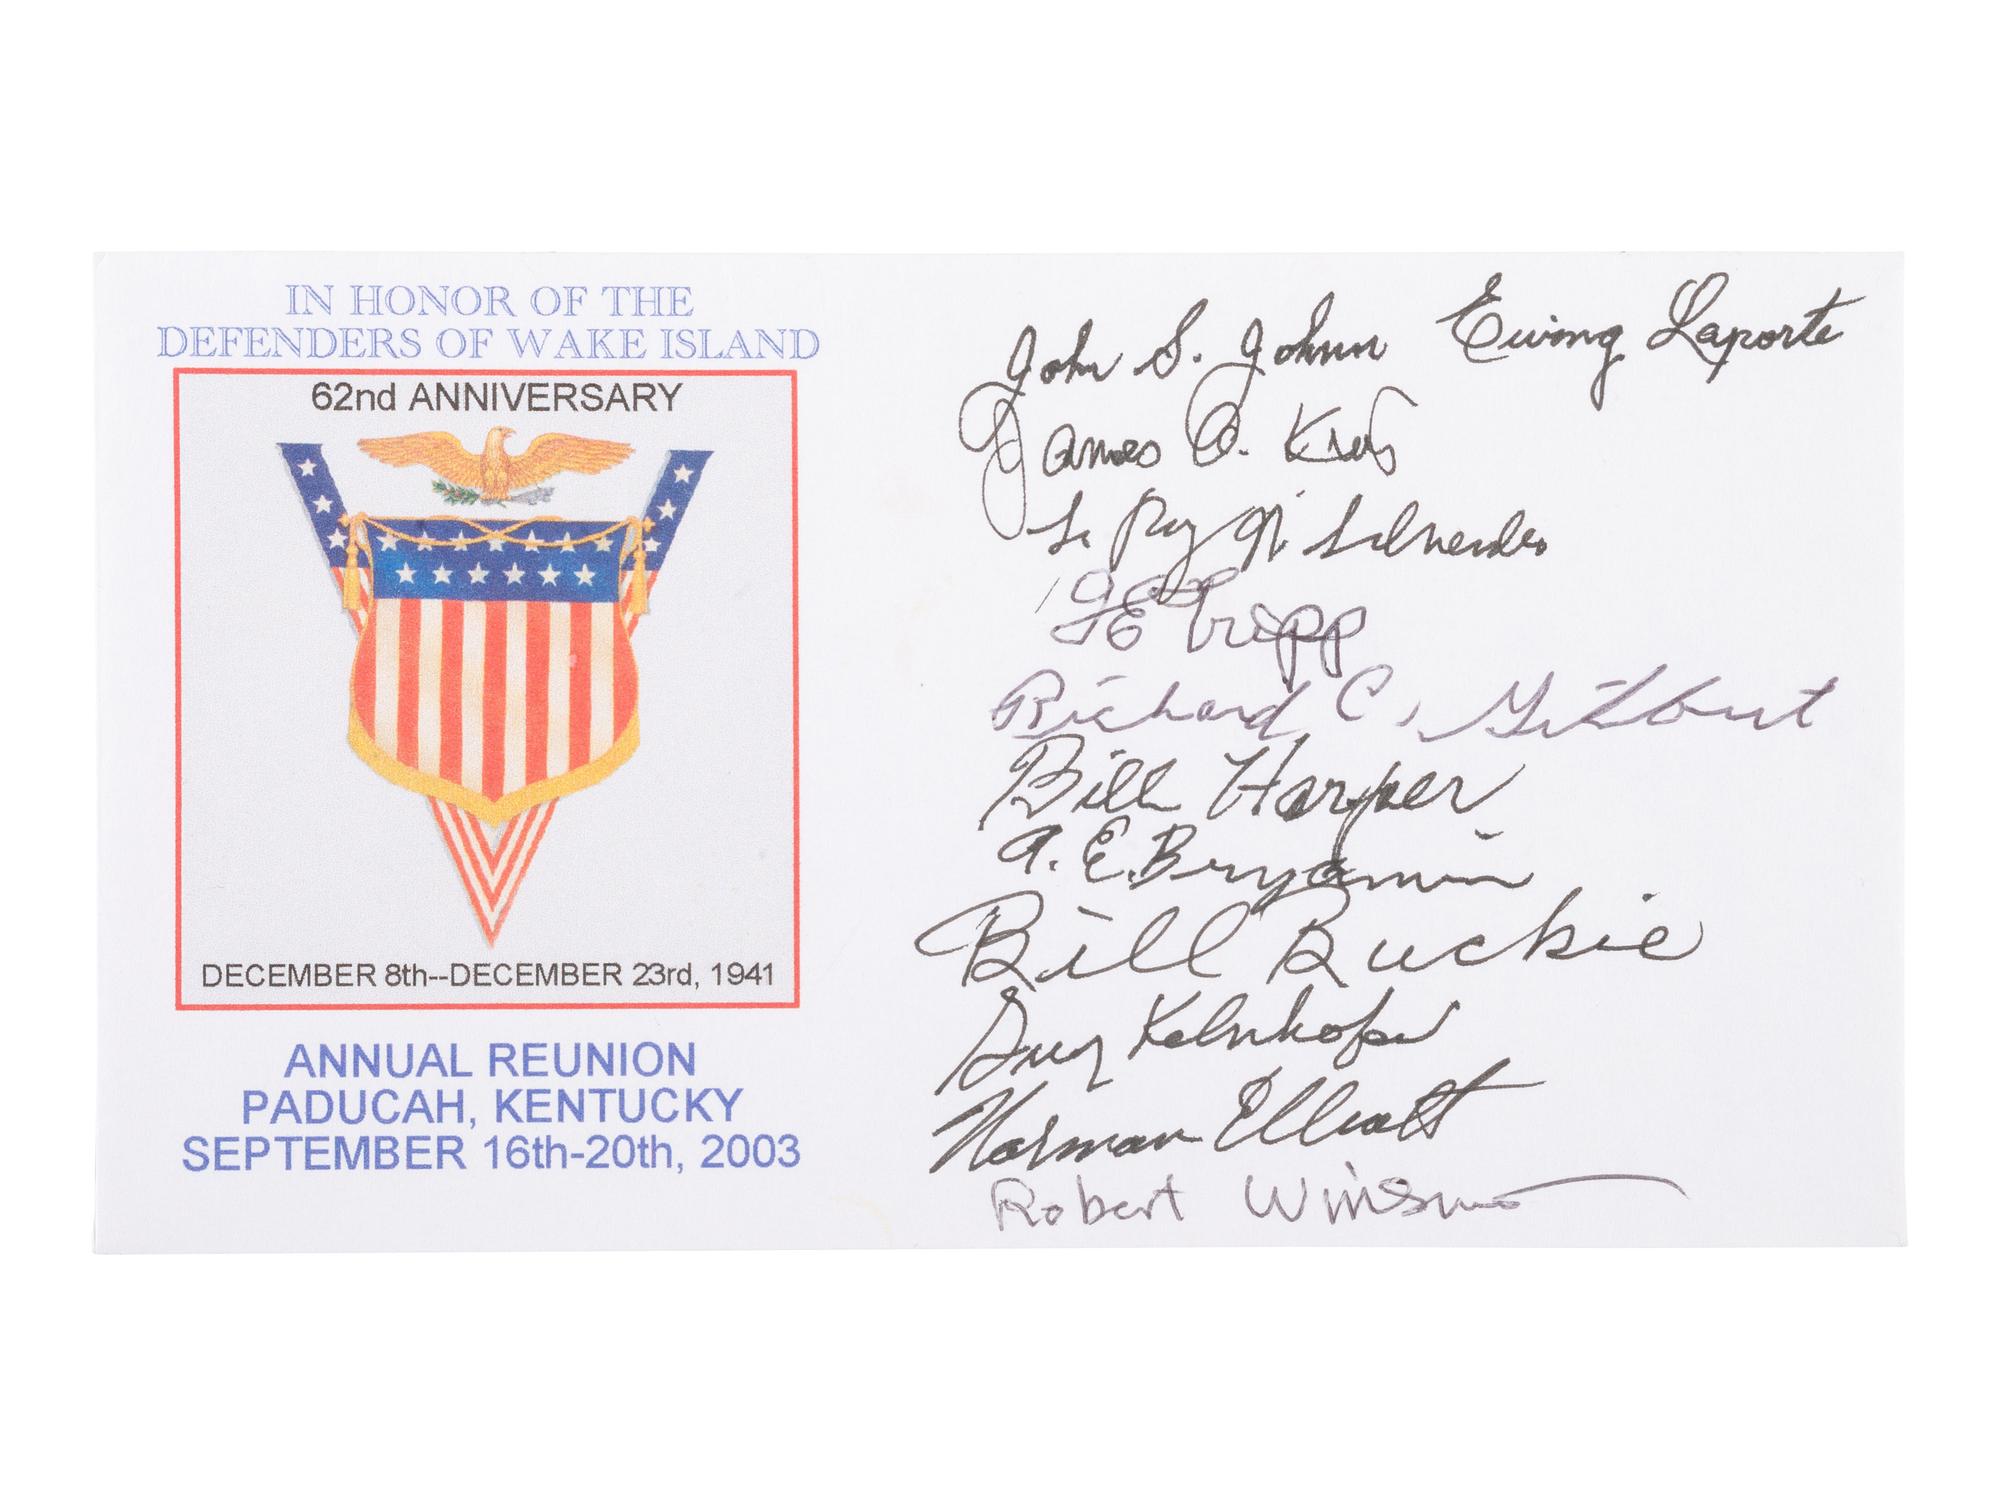 IN HONOR OF THE
DEFENDERS OF WAKE ISLAND
62nd ANNIVERSARY
DECEMBER 8th--DECEMBER 23rd, 1941
ANNUAL REUNION
PADUCAH, KENTUCKY
SEPTEMBER 16th-20th, 2003
John S. Johnson Ewing Laporte
James O. King
Le Roy N. Schneider
J E Tripp
Richard C. Gilbert
Bill Harper
A. E. Benjamin
Bill Buckie
Guy Kelnhofer
Norman Elliott
Robert